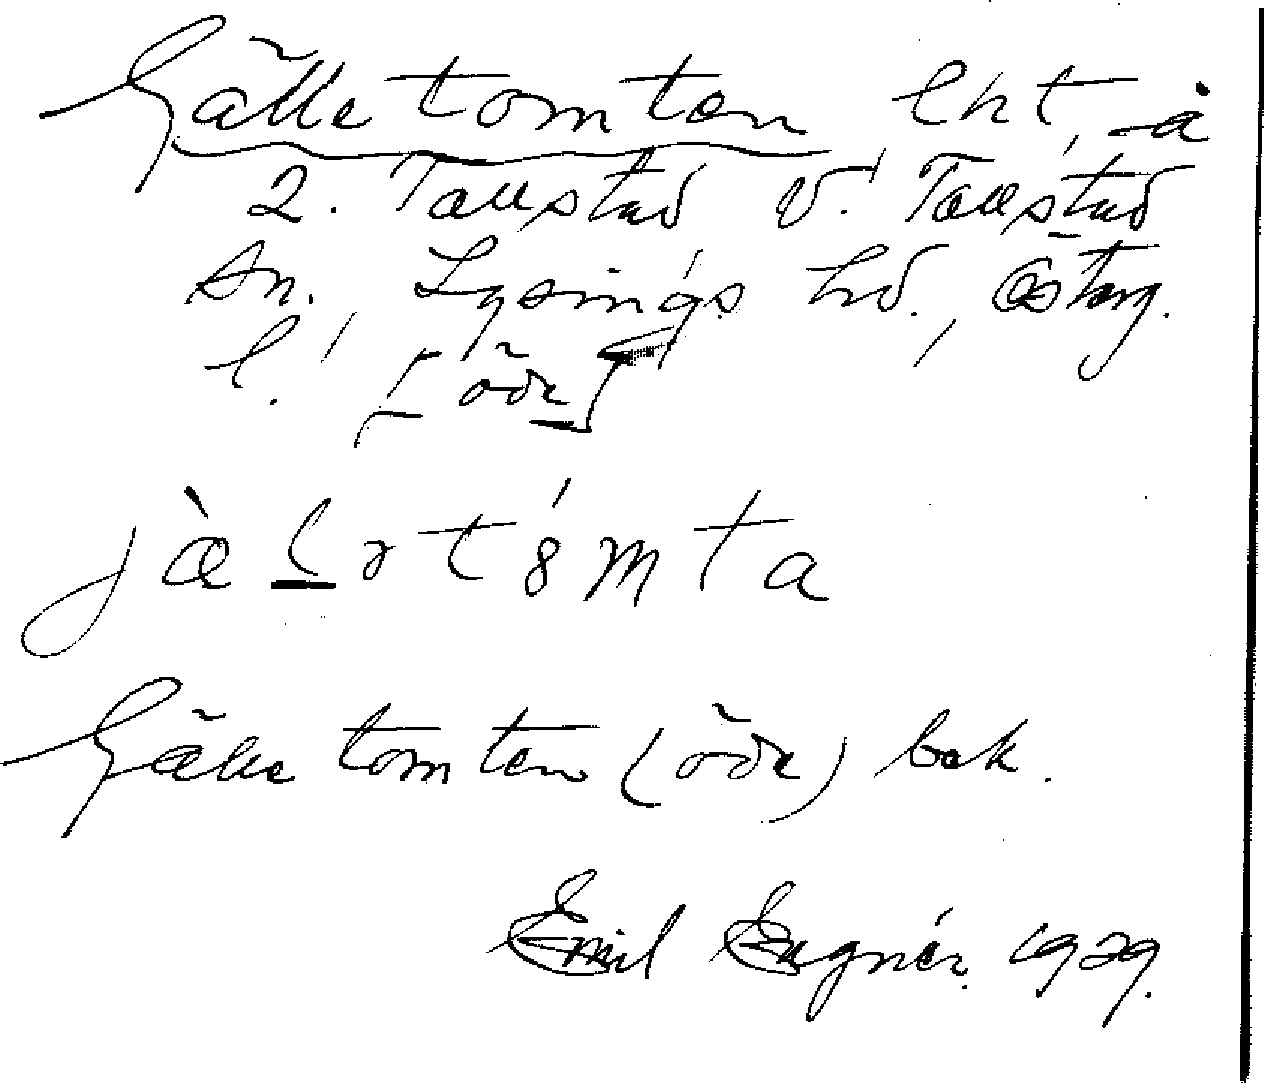 Källetomten lht, å
2. Tallstad V. Tollstad
sn., Lysings hd., Österg.
l. [öde]
jæ̀lɘtómta
Källe tomten (öde) bek.
Emil Engnér. 1929.